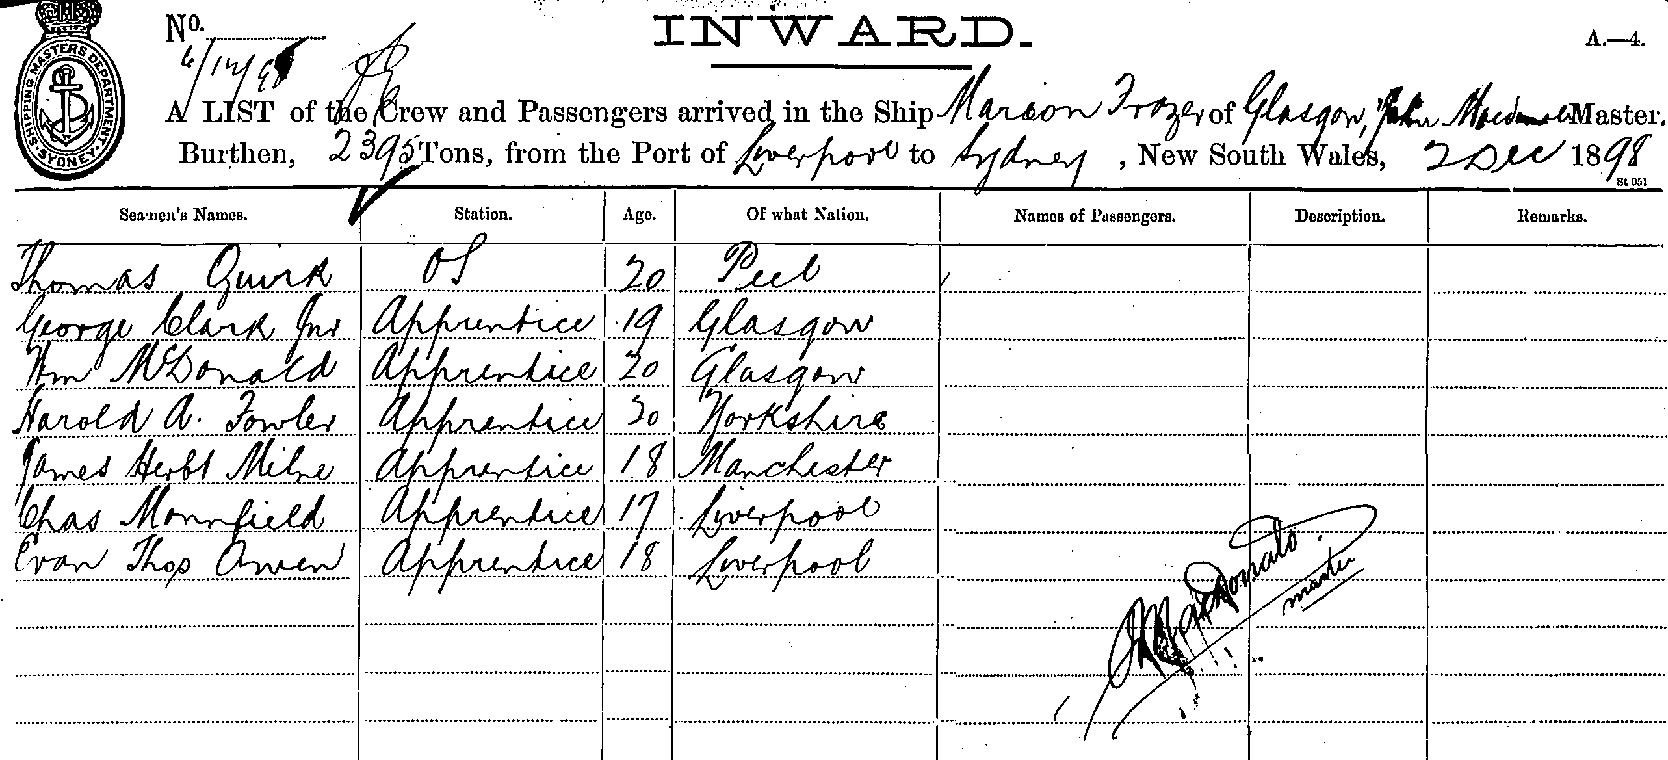 SHIPPING MASTERS DEPARTMENT
SYDNEY
No.
INWARD.
A.—4.
6/12/98
A LIST of the Crew and Passengers arrived in the Ship Marion Frazer of Glasgow, John Master.
Burthen, 2395 Tons, from the Port of Liverpool to Sydney, New South Wales, 2 Dec 1898
St 051
Seamen's Names. Station. Age. Of what Nation. Names of Passengers. Description. Remarks.
Thomas Quirk OS 20 Peel
George Clark Jnr Apprentice 19 Glasgow
Wm McDonald Apprentice 20 Glasgow
Harold A. Fowler Apprentice 20 Yorkshire
James Herbt Milne Apprentice 18 Manchester
Chas Monnfield Apprentice 17 Liverpool
Evan Thos Owen Apprentice 18 Liverpool
master